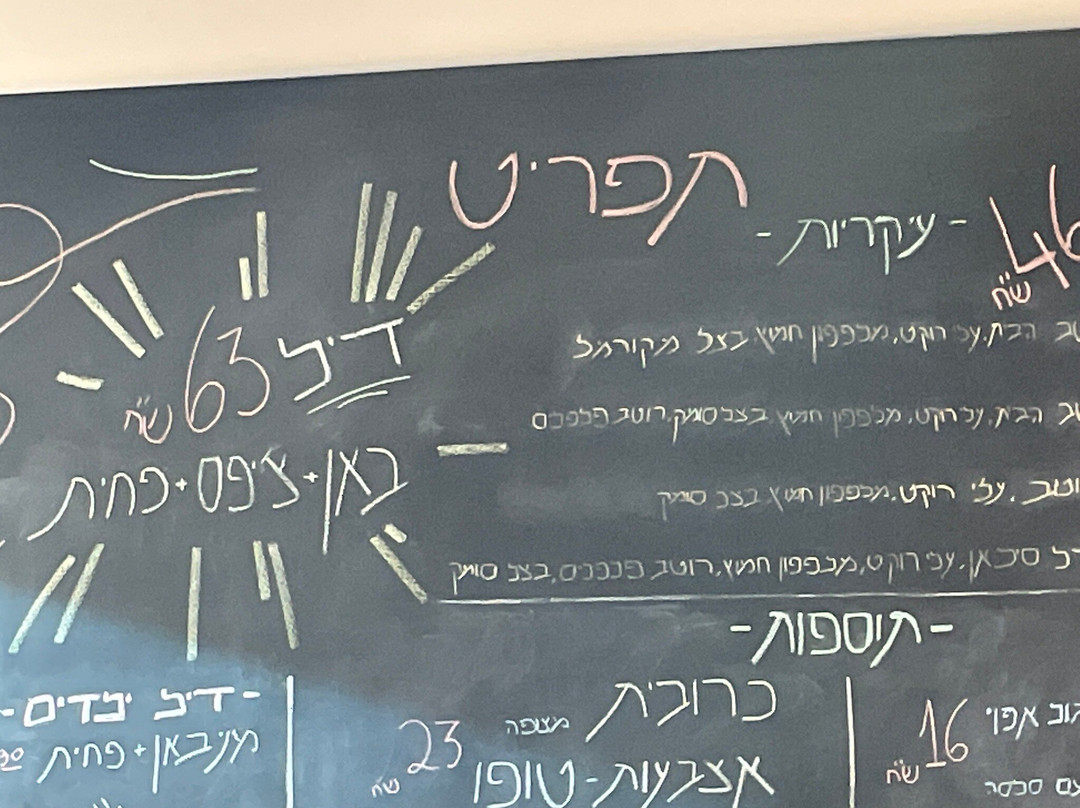 תפריט
- עיקריות -
46 ש"ח
הבית, עלי רוקט, מלפפון חמוץ, בצל מקורמל
הבית, עלי רוקט, מלפפון חמוץ, בצל סומק, רוטב פלפלים
רוטב, עלי רוקט, מלפפון חמוץ, בצל סומק
עלי רוקט, מלפפון חמוץ, רוטב פלפלים, בצל סומק
דיל 63 ש"ח
באן + ציפס + פחית
- תוספות -
אפוי 16 ש"ח
עם סלסה
כרובית
מצופה
23 ש"ח
אצבעות - טופו
- דיל ילדים -
מיני באן + פחית